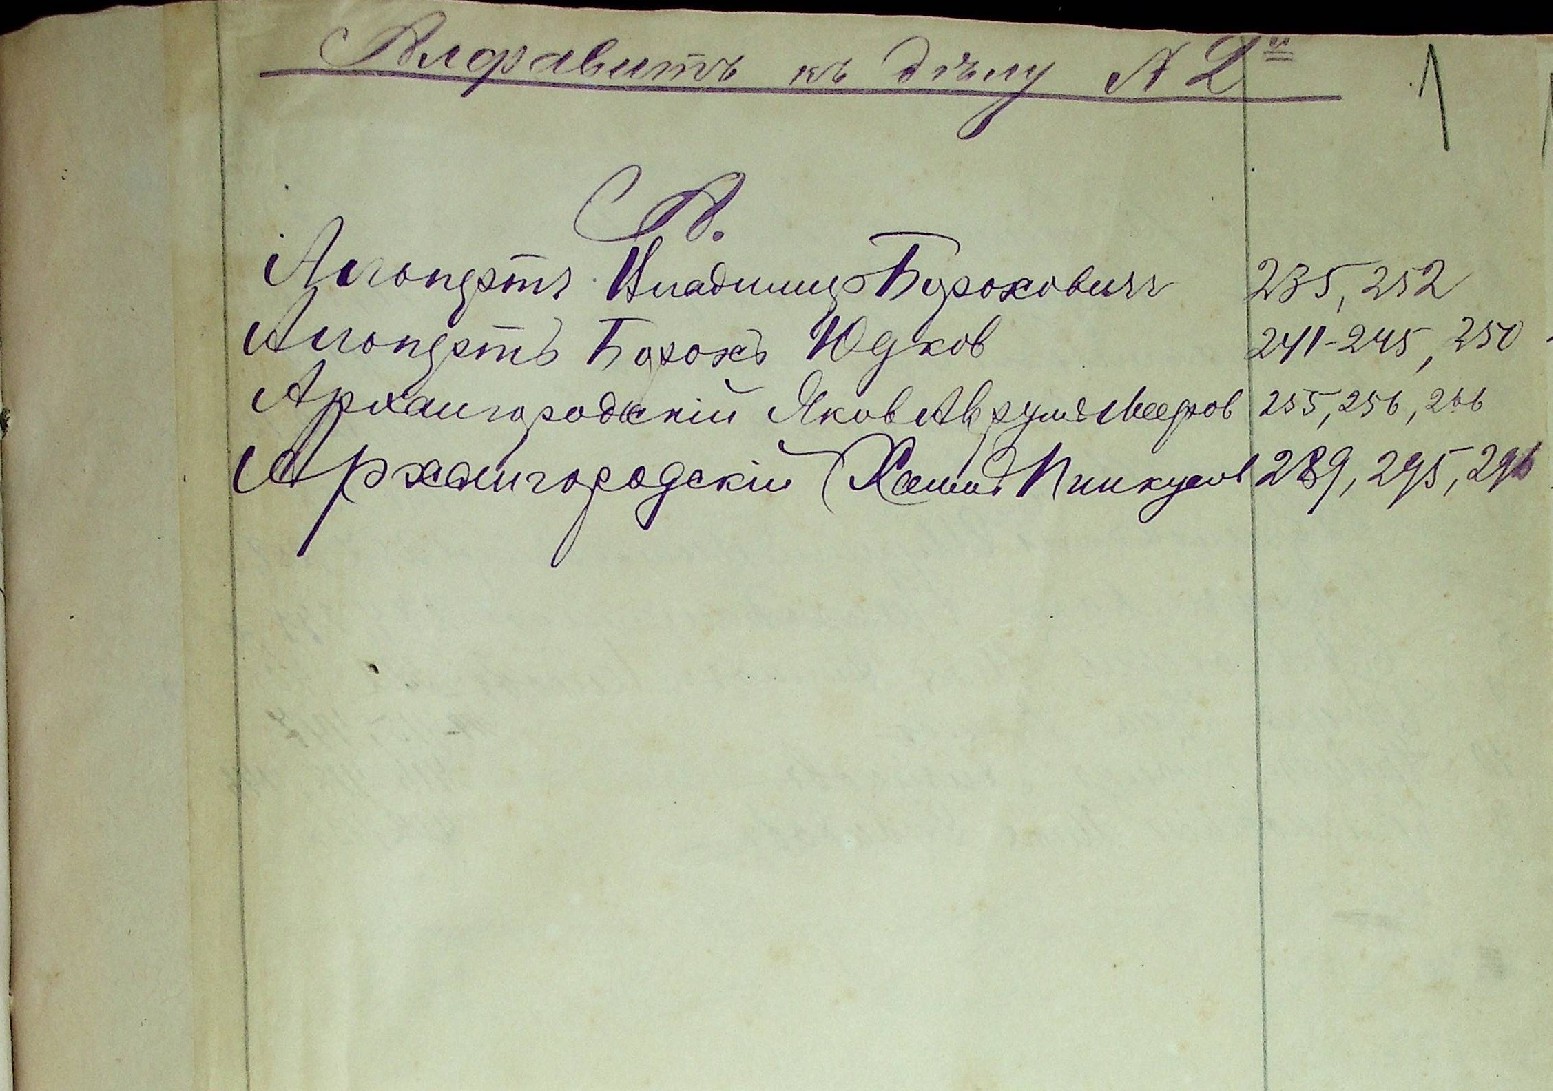 Алфавитъ къ дѣлу №2й
1
А.
Агопертъ Владимир Борохович 235, 252
Агопертъ Борохъ Юдков 241-245, 250
Архангородскій Яков Аврумъ Мееров 255, 256, 266
Архангородскій Хаим Пинкусов 289, 295, 296